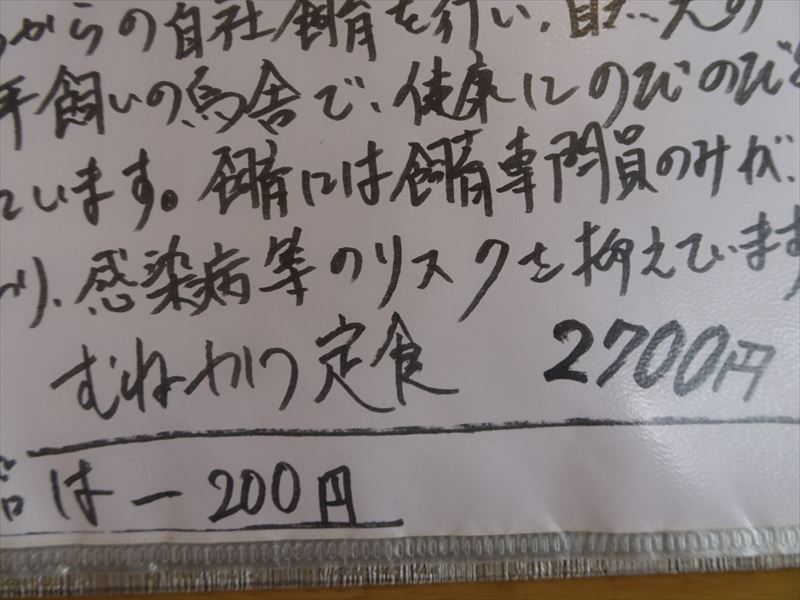 からの自社飼育を行い、自然の
平飼いの鳥舎で、健康にのびのびと
ています。飼育には飼育専門員のみが、
り、感染病等のリスクを抑えています
むねかつ定食 2700円
は － 200円